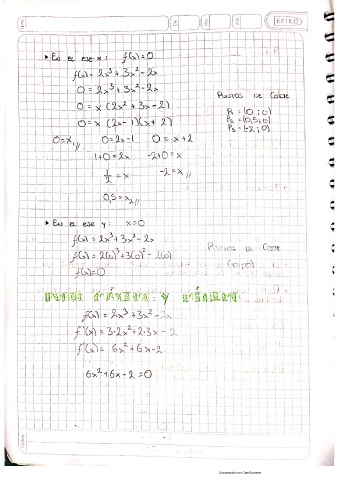 ESTILO
• En el eje x: f(x)=0
f(x) = 2x³+3x²-2x
0 = 2x³+3x²-2x
0 = x (2x²+3x-2)
0 = x (2x-1)(x+2)
0=x₁// 0=2x-1 0=x+2
1+0=2x -2+0=x
1/2 = x -2=x//
0,5=x₂//
Puntos de Corte
P₁ = (0;0)
P₂ = (0,5;0)
P₃ = (-2;0)
• En el eje y: x=0
f(x) = 2x³+3x²-2x
f(x) = 2(0)³+3(0)²-2(0)
f(x)=0
Puntos de Corte
(0;0)
f(x) = 2x³+3x²-2x
f'(x) = 3·2x²+2·3x-2
f'(x) = 6x²+6x-2
6x²+6x-2=0
Escaneado con CamScanner